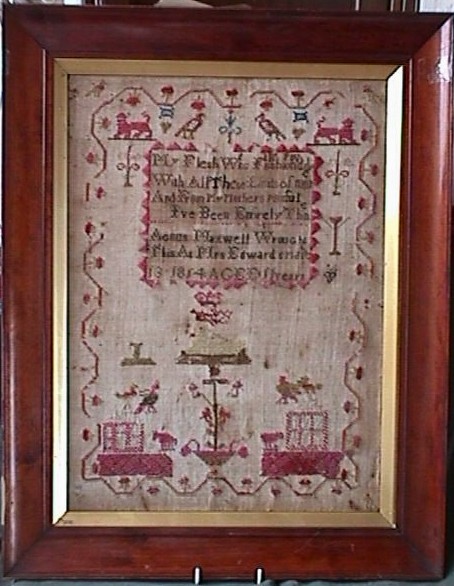 My Flesh Was Fashioned
With All These Limbs of mine
And From My Mothers painful
I've Been Entirely Thin
Agnus Maxwell Wrought
This At Mrs Edward
13 1814 AGED years